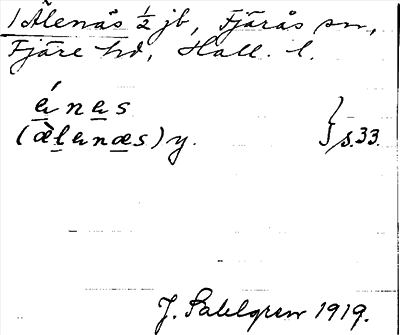 1 Ålenäs ½ jb, Fjärås sn,
Fjäre hd, Hall. l.
é n e s
(æ̀lenæs) y. } s. 33.
J. Sahlgren 1919.